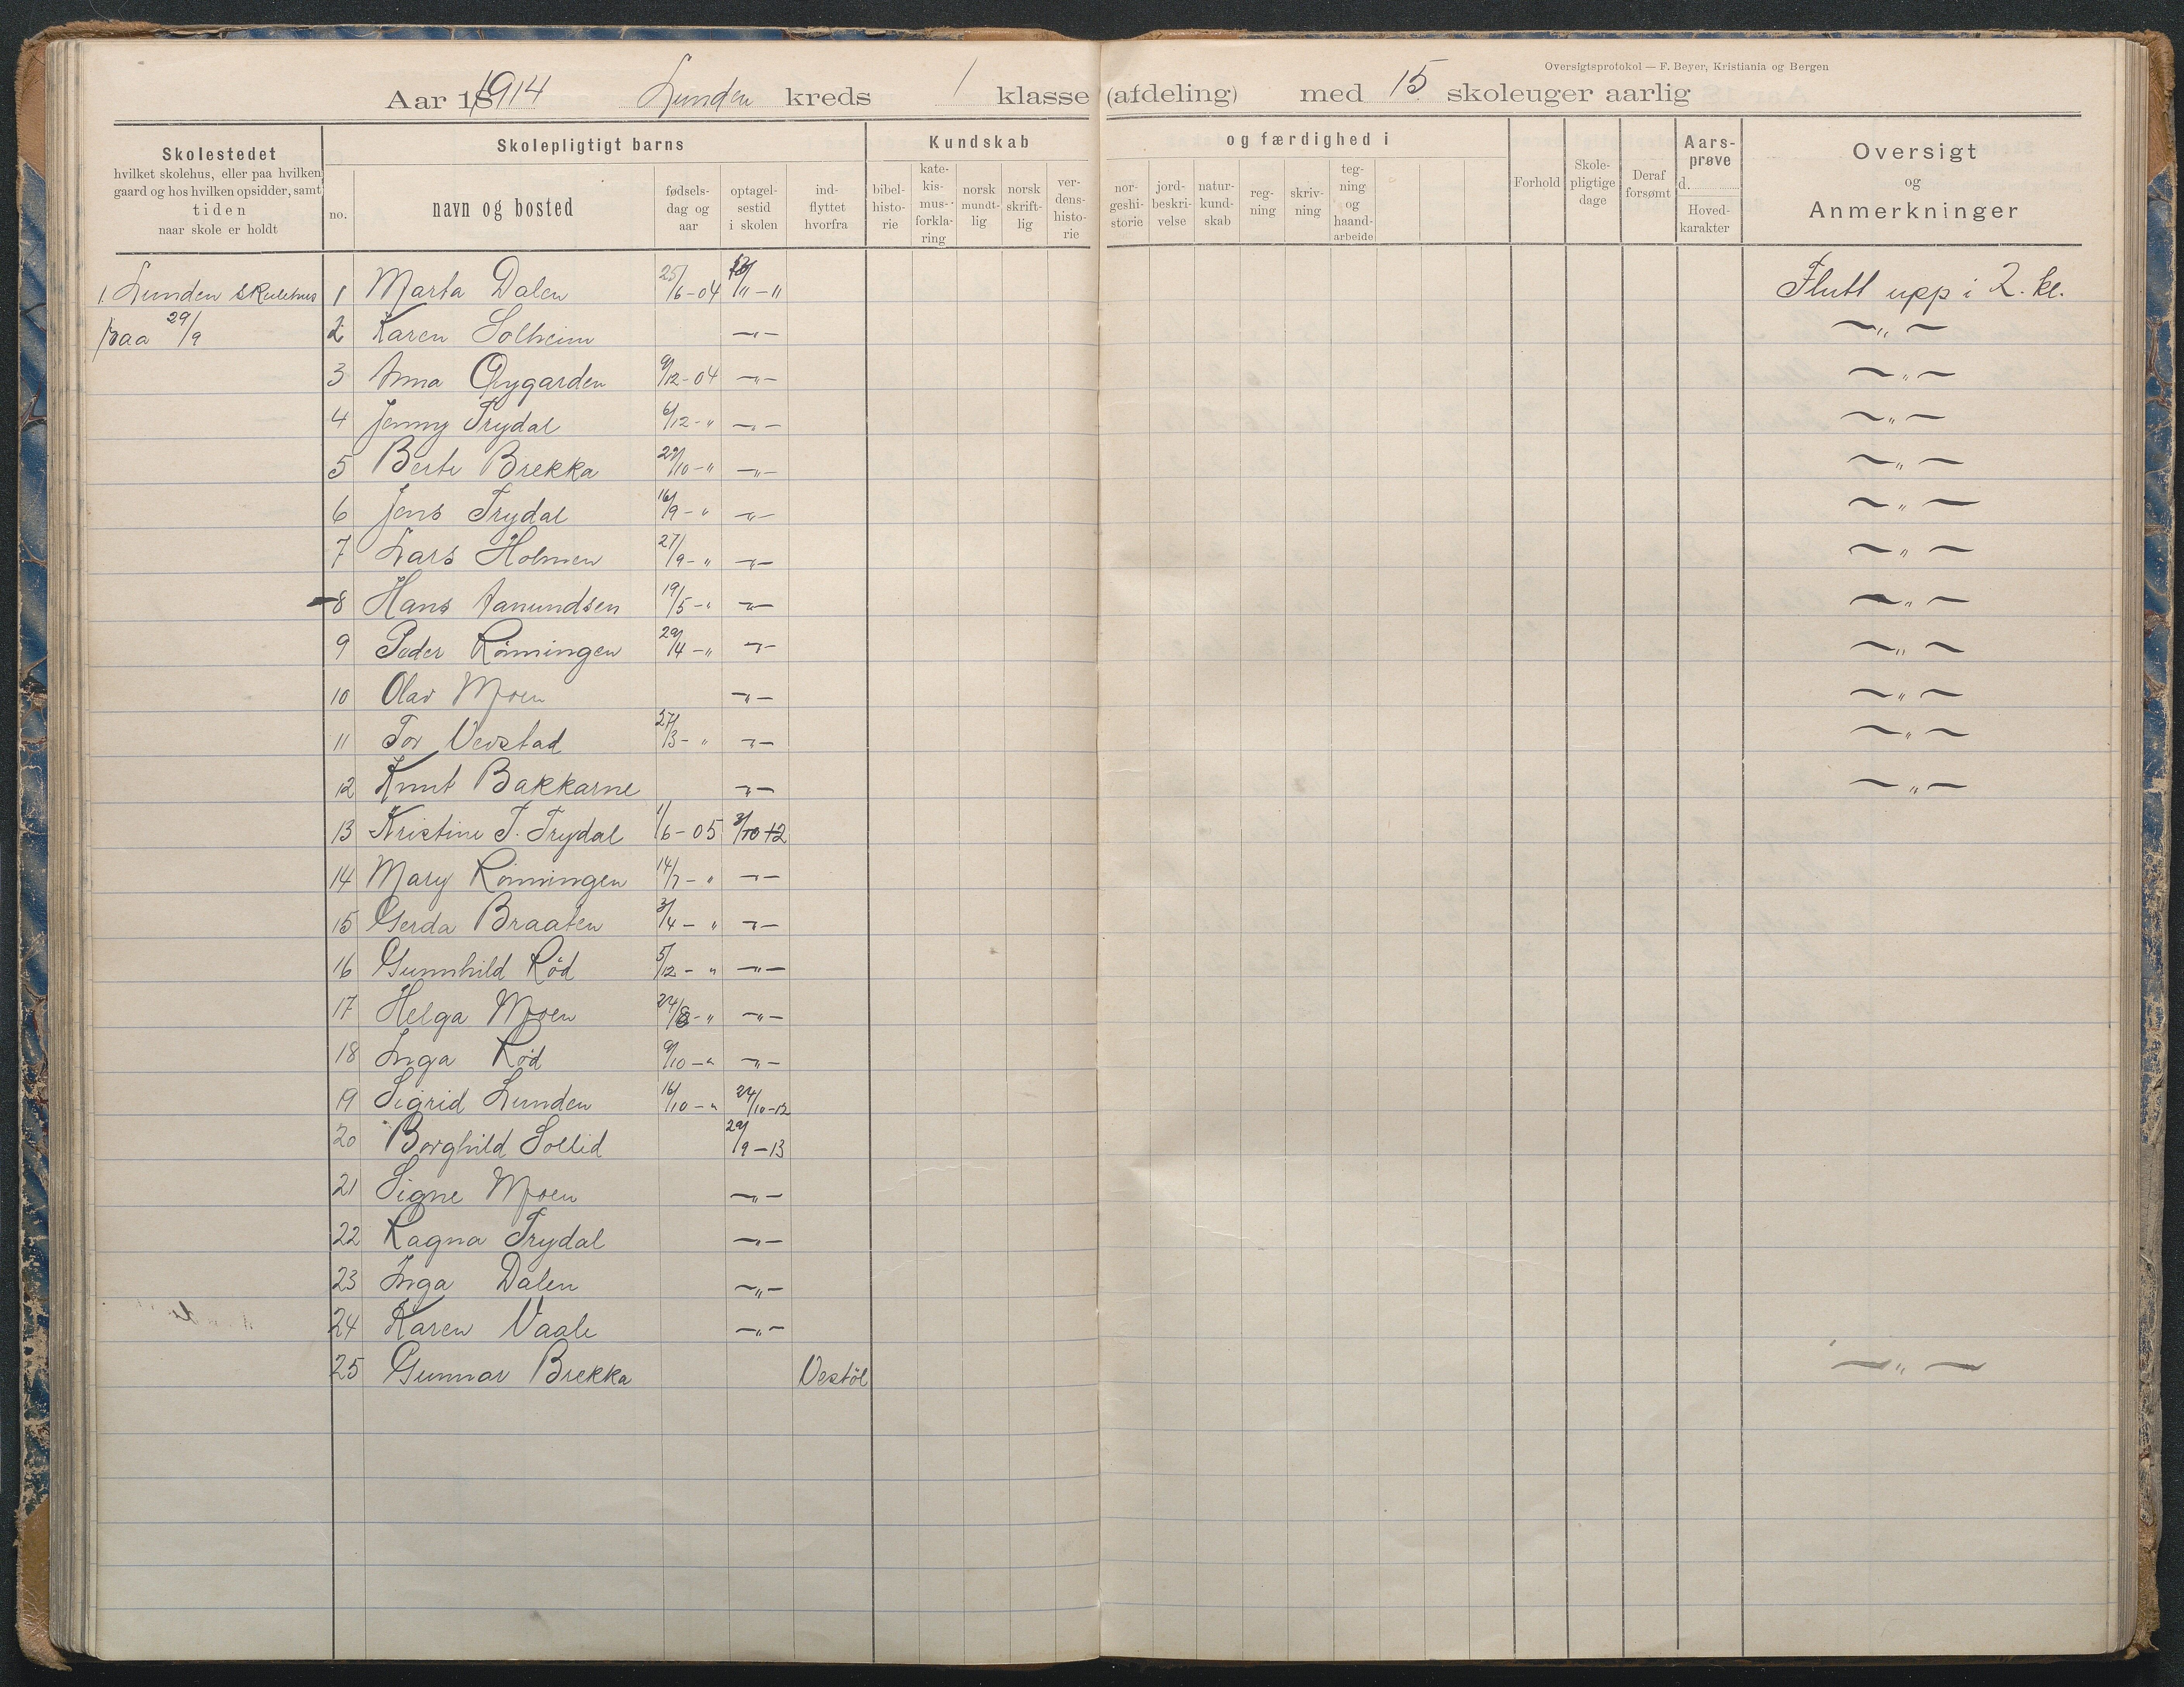 Oversigtsprotokol — F. Beyer, Kristiania og Bergen
Aar 1914 Lunden kreds 1 klasse (afdeling) med 15 skoleuger aarlig
Skolestedet
hvilket skolehus, eller paa hvilken
gaard og hos hvilken opsidder, samt
tiden
naar skole er holdt
Skolepligtigt barns
no.
navn og bosted
fødsels-
dag og
aar
optagel-
sestid
i skolen
ind-
flyttet
hvorfra
Kundskab
bibel-
histo-
rie
kate-
kis-
mus-
forkla-
ring
norsk
mundt-
lig
norsk
skrift-
lig
ver-
dens-
histo-
rie
og færdighed i
nor-
geshi-
storie
jord-
beskri-
velse
natur-
kund-
skab
reg-
ning
skriv-
ning
teg-
ning
og
haand-
arbeide
Forhold
Skole-
pligtige
dage
Deraf
forsømt
Aars-
prøve
d.
Hoved-
karakter
Oversigt
og
Anmerkninger
1 Lunden skulehus 1 Marta Dalen 25/6-04 /11-11 Flutt upp i 2. kl.
29/9 2 Karen Solheim —„— —„—
3 Anna Øygarden 9/12-04 —„— —„—
4 Jenny Trydal 6/12-" —„— —„—
5 Berte Brekka 29/10-" —„— —„—
6 Jens Trydal 16/9-" —„— —„—
7 Lars Holmen 27/9-" —„— —„—
8 Hans Aanundsen 19/5-" —„— —„—
9 Peder Rönningen 29/4-" —„— —„—
10 Olav Moen —„— —„—
11 Tor Vevstad 27/3-" —„— —„—
12 Knut Bakkarne —„— —„—
13 Kristine T. Trydal 1/6-05 3/10-12
14 Mary Rönningen 14/7-" —„—
15 Gerda Braaten 3/4-" —„—
16 Gunnhild Röd 5/12-" —„—
17 Helga Moen 24/8-" —„—
18 Inga Röd 9/10-" —„—
19 Sigrid Lunden 16/10-" 24/10-12
20 Borghild Sollid 29/9-13
21 Signe Moen —„—
22 Ragna Trydal —„—
23 Inga Dalen —„—
24 Karen Vaale —„—
25 Gunnar Brekka Vestöl —„—